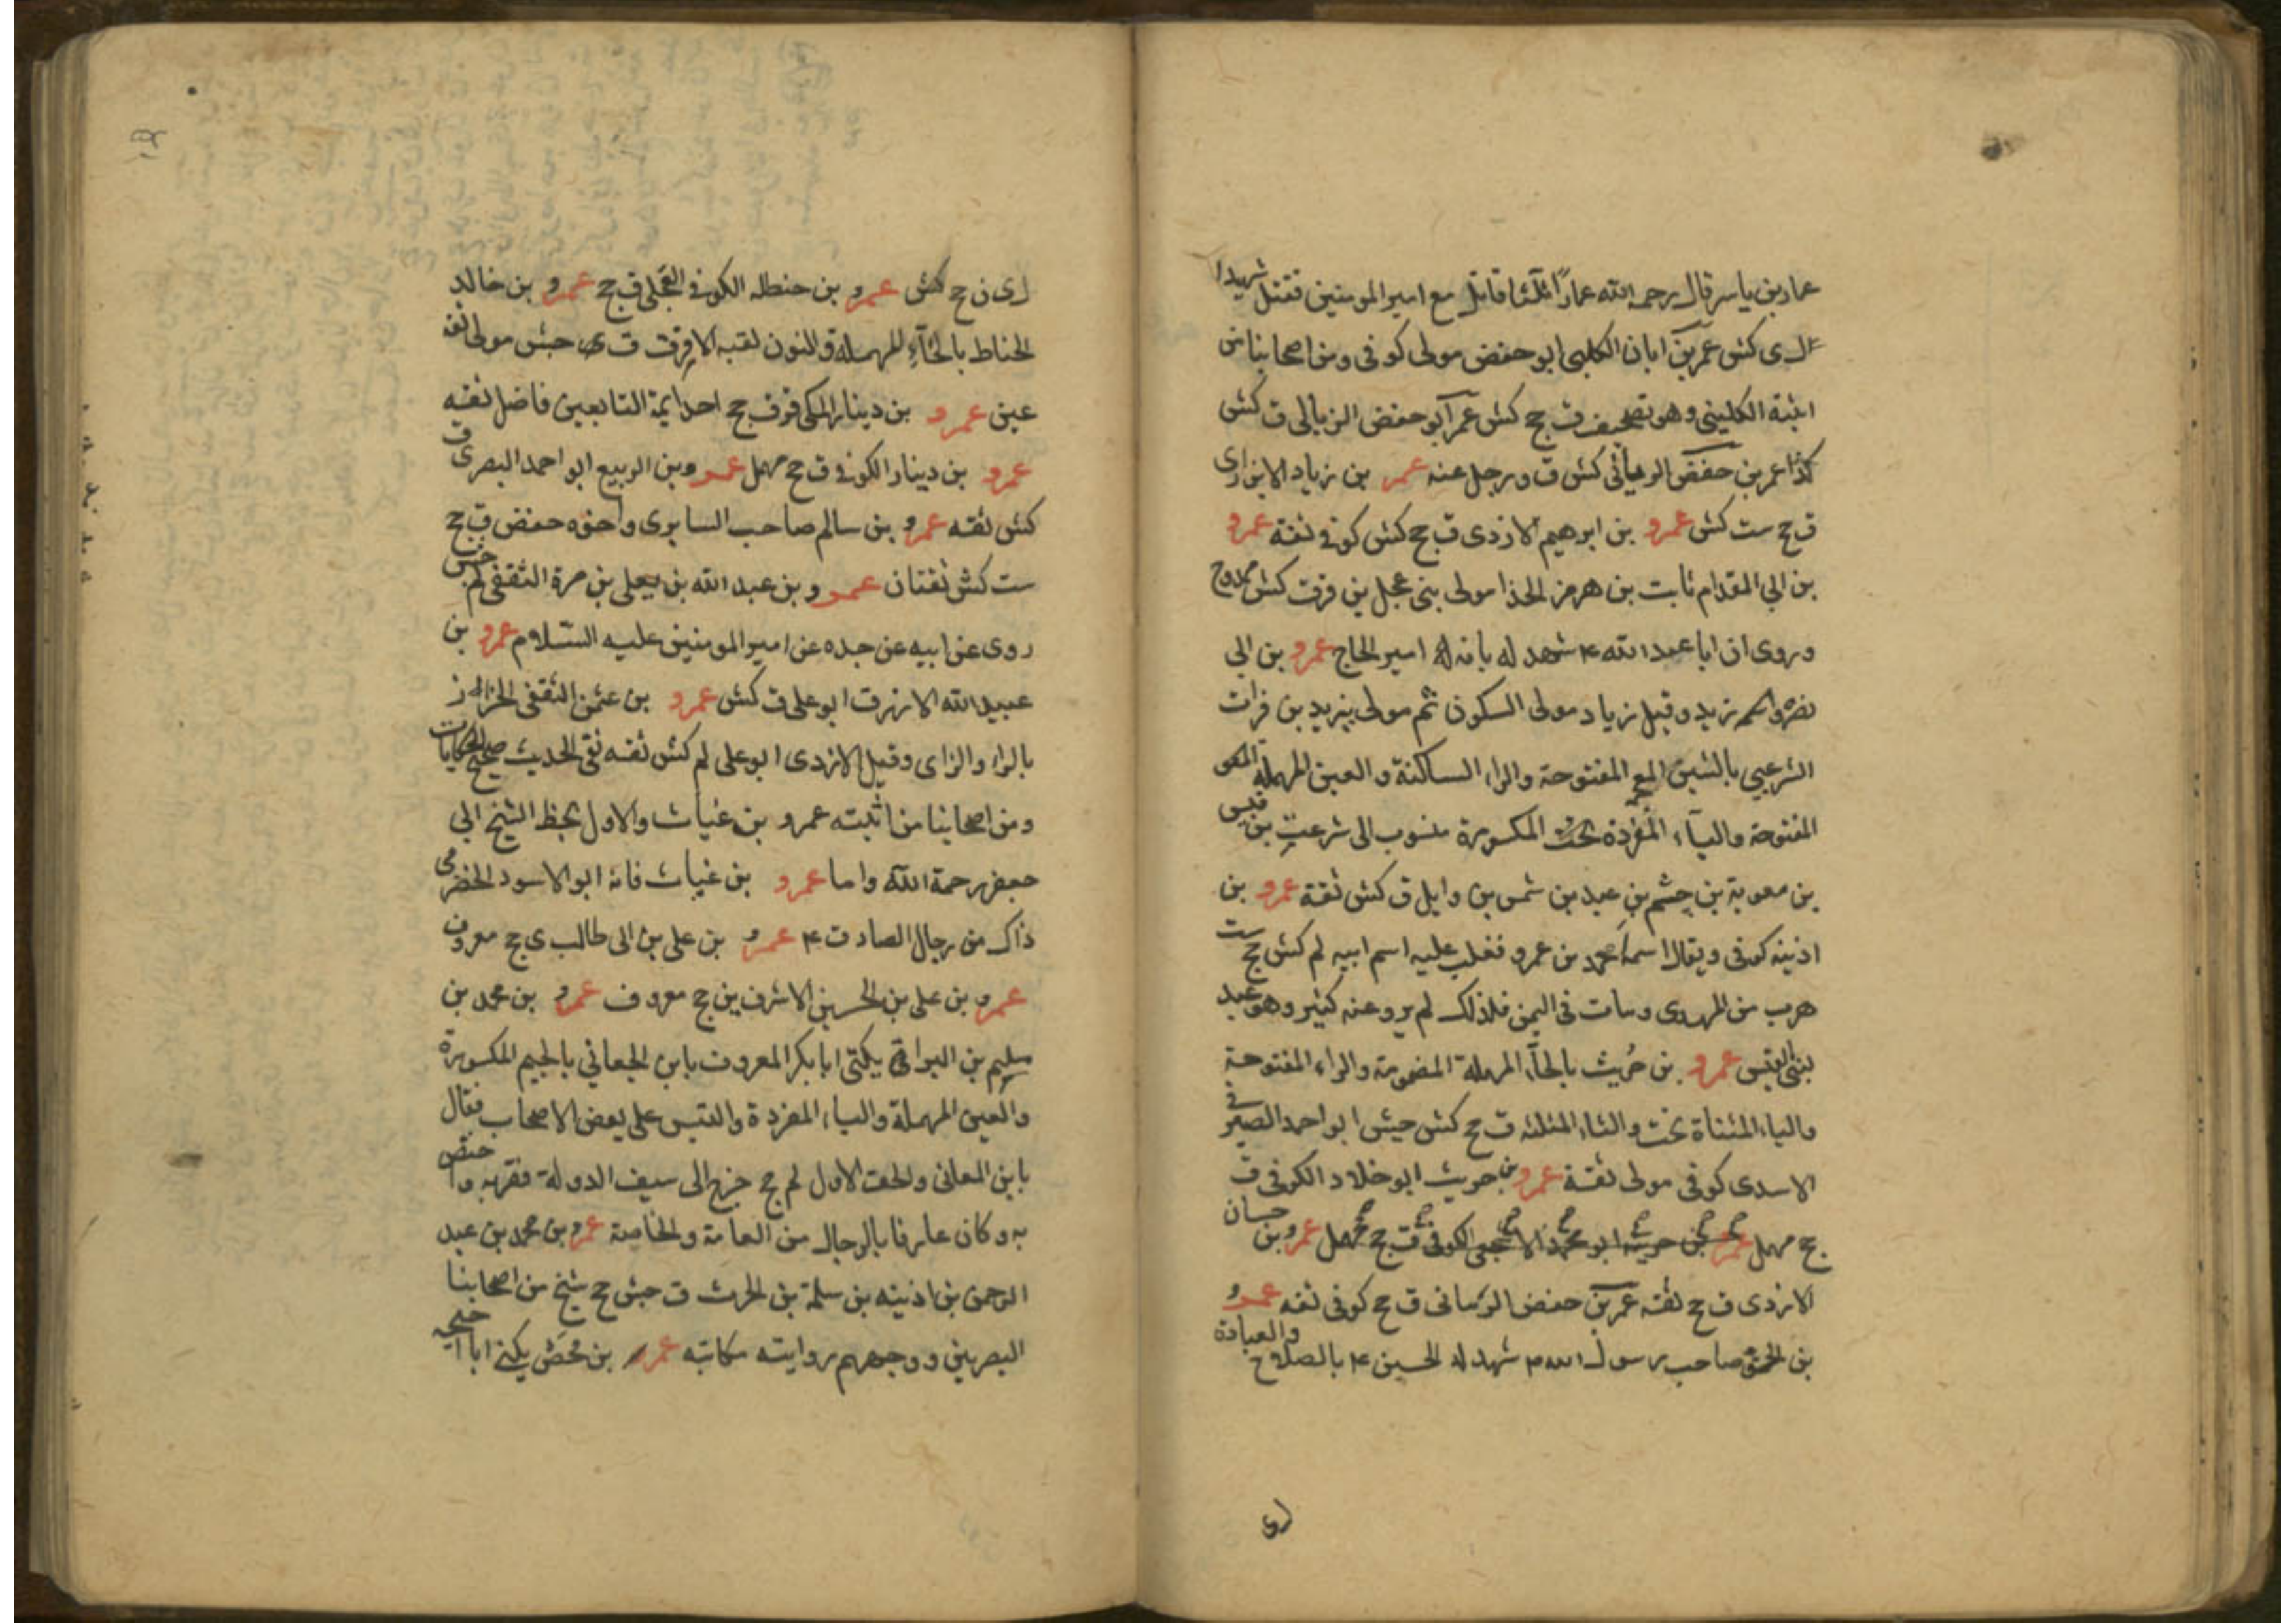 عمار بن ياسر قال رحم الله عمارا ثلثا قاتل مع امير المومنين فقتل شهيدا
ى كش عمر بن ابان الكلبى ابو حفص مولى كوفى ومن اصحابنا من
اثبته الكلينى وهو تصحيف ق جخ كش عمر ابو حفص الزبالى ق كش
كذا عمر بن حفص الرمانى كش ق ورجل عنه عمر بن زياد الابزارى
ق جخ ست كش عمرو بن ابرهيم الازدى ق جخ كش كوفى ثقة عمرو
بن ابى المقدام ثابت بن هرمز الحذا مولى بنى عجل ين قر ق كش ممدوح
وروى ان ابا عبد الله ع شهد له بانه امير الحاج عمرو بن ابى
نصر واسمه زيد وقيل زياد مولى السكون ثم مولى يزيد بن فرات
الشرعبى بالشين المعجمة المفتوحة والراء الساكنة والعين المهملة
المفتوحة والياء المفردة تحت المكسورة منسوب الى شرعب بن قيس
بن معوية بن جشم بن عبد بن شمس بن وايل ق كش ثقة عمرو بن
اذنيه كوفى ويقال اسمه محمد بن عمرو فغلب عليه اسم ابيه لم كش جخ ست
هرب من المهدى ومات فى اليمن فلذلك لم يرو عنه كثير وهو عبد
بنى القيس عمرو بن حُريث بالحاء المهملة المضمومة والراء المفتوحة
والياء المثناة تحت والثاء المثلثه ق جخ كش حبش ابو احمد الصيرفى
الاسدى كوفى مولى ثقة عمرو بن حريث ابو خلاد الكوفى ق
جخ مهمل عمرو بن حريث ابو محمد الاشجعى الكوفى ق جخ مهمل عمرو بن حسان
الازدى ق جخ ثقه عمر بن حفص الرمانى ق جخ كوفى ثقه عمرو
بن الحمق صاحب رسول الله م شهد له الحسين ع بالصلاح والعبادة
ل ى ن جخ كش عمرو بن حنظله الكوفى العجلى ق جخ عمرو بن خالد
الحناط بالحاء المهملة والنون لقبه الافرق ق حبش مولى ثقه
عين عمرو بن دينار المكى قر ق جخ احد ايمة التابعين فاضل ثقه
عمرو بن دينار الكوفى ق جخ مهمل عمرو بن الربيع ابو احمد البصرى ق
كش ثقه عمرو بن سالم صاحب السابرى واخوه حفص ق جخ
ست كش ثقتان عمرو بن عبد الله بن يعلى بن مرة الثقفى لم جش
روى عن ابيه عن جده عن امير المومنين عليه السلام عمرو بن
عبيد الله الازرق ابو على ق كش عمرو بن عثمن الثقفى الخزاز
بالراء والزاى وقيل الازدى ابو على لم كش ثقه نقى الحديث صحيح الحكايات
ومن اصحابنا من اثبته عمرو بن غياث والاول بخط الشيخ ابى
جعفر رحمة الله واما عمرو بن غياث فانه ابو الاسود الحضرمى
ذاك من رجال الصادق ع عمرو بن على بن ابى طالب ى جخ معروف
عمرو بن على بن الحسين الاشرف ين جخ معروف عمرو بن محمد بن
سليم بن البرا يكنى ابا بكر المعروف بابن الجعابى بالجيم المكسورة
والعين المهملة والباء المفردة والتبس على بعض الاصحاب فقال
بابن المعانى والحق الاول لم جخ خرج الى سيف الدولة فقربه واختص
به وكان عارفا بالرجال من العامة والخاصة عمرو بن محمد بن عبد
الرحمن بن اذنيه بن سلمة بن الحرث ق حبش جخ شيخ من اصحابنا
البصريين ووجههم روايته مكاتبه عمرو بن محصن يكنى ابا احيحه